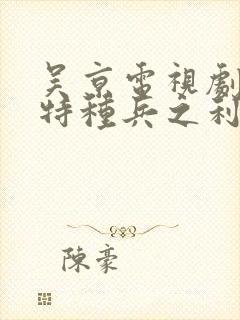 吴京電視劇
特種兵之利
陳豪